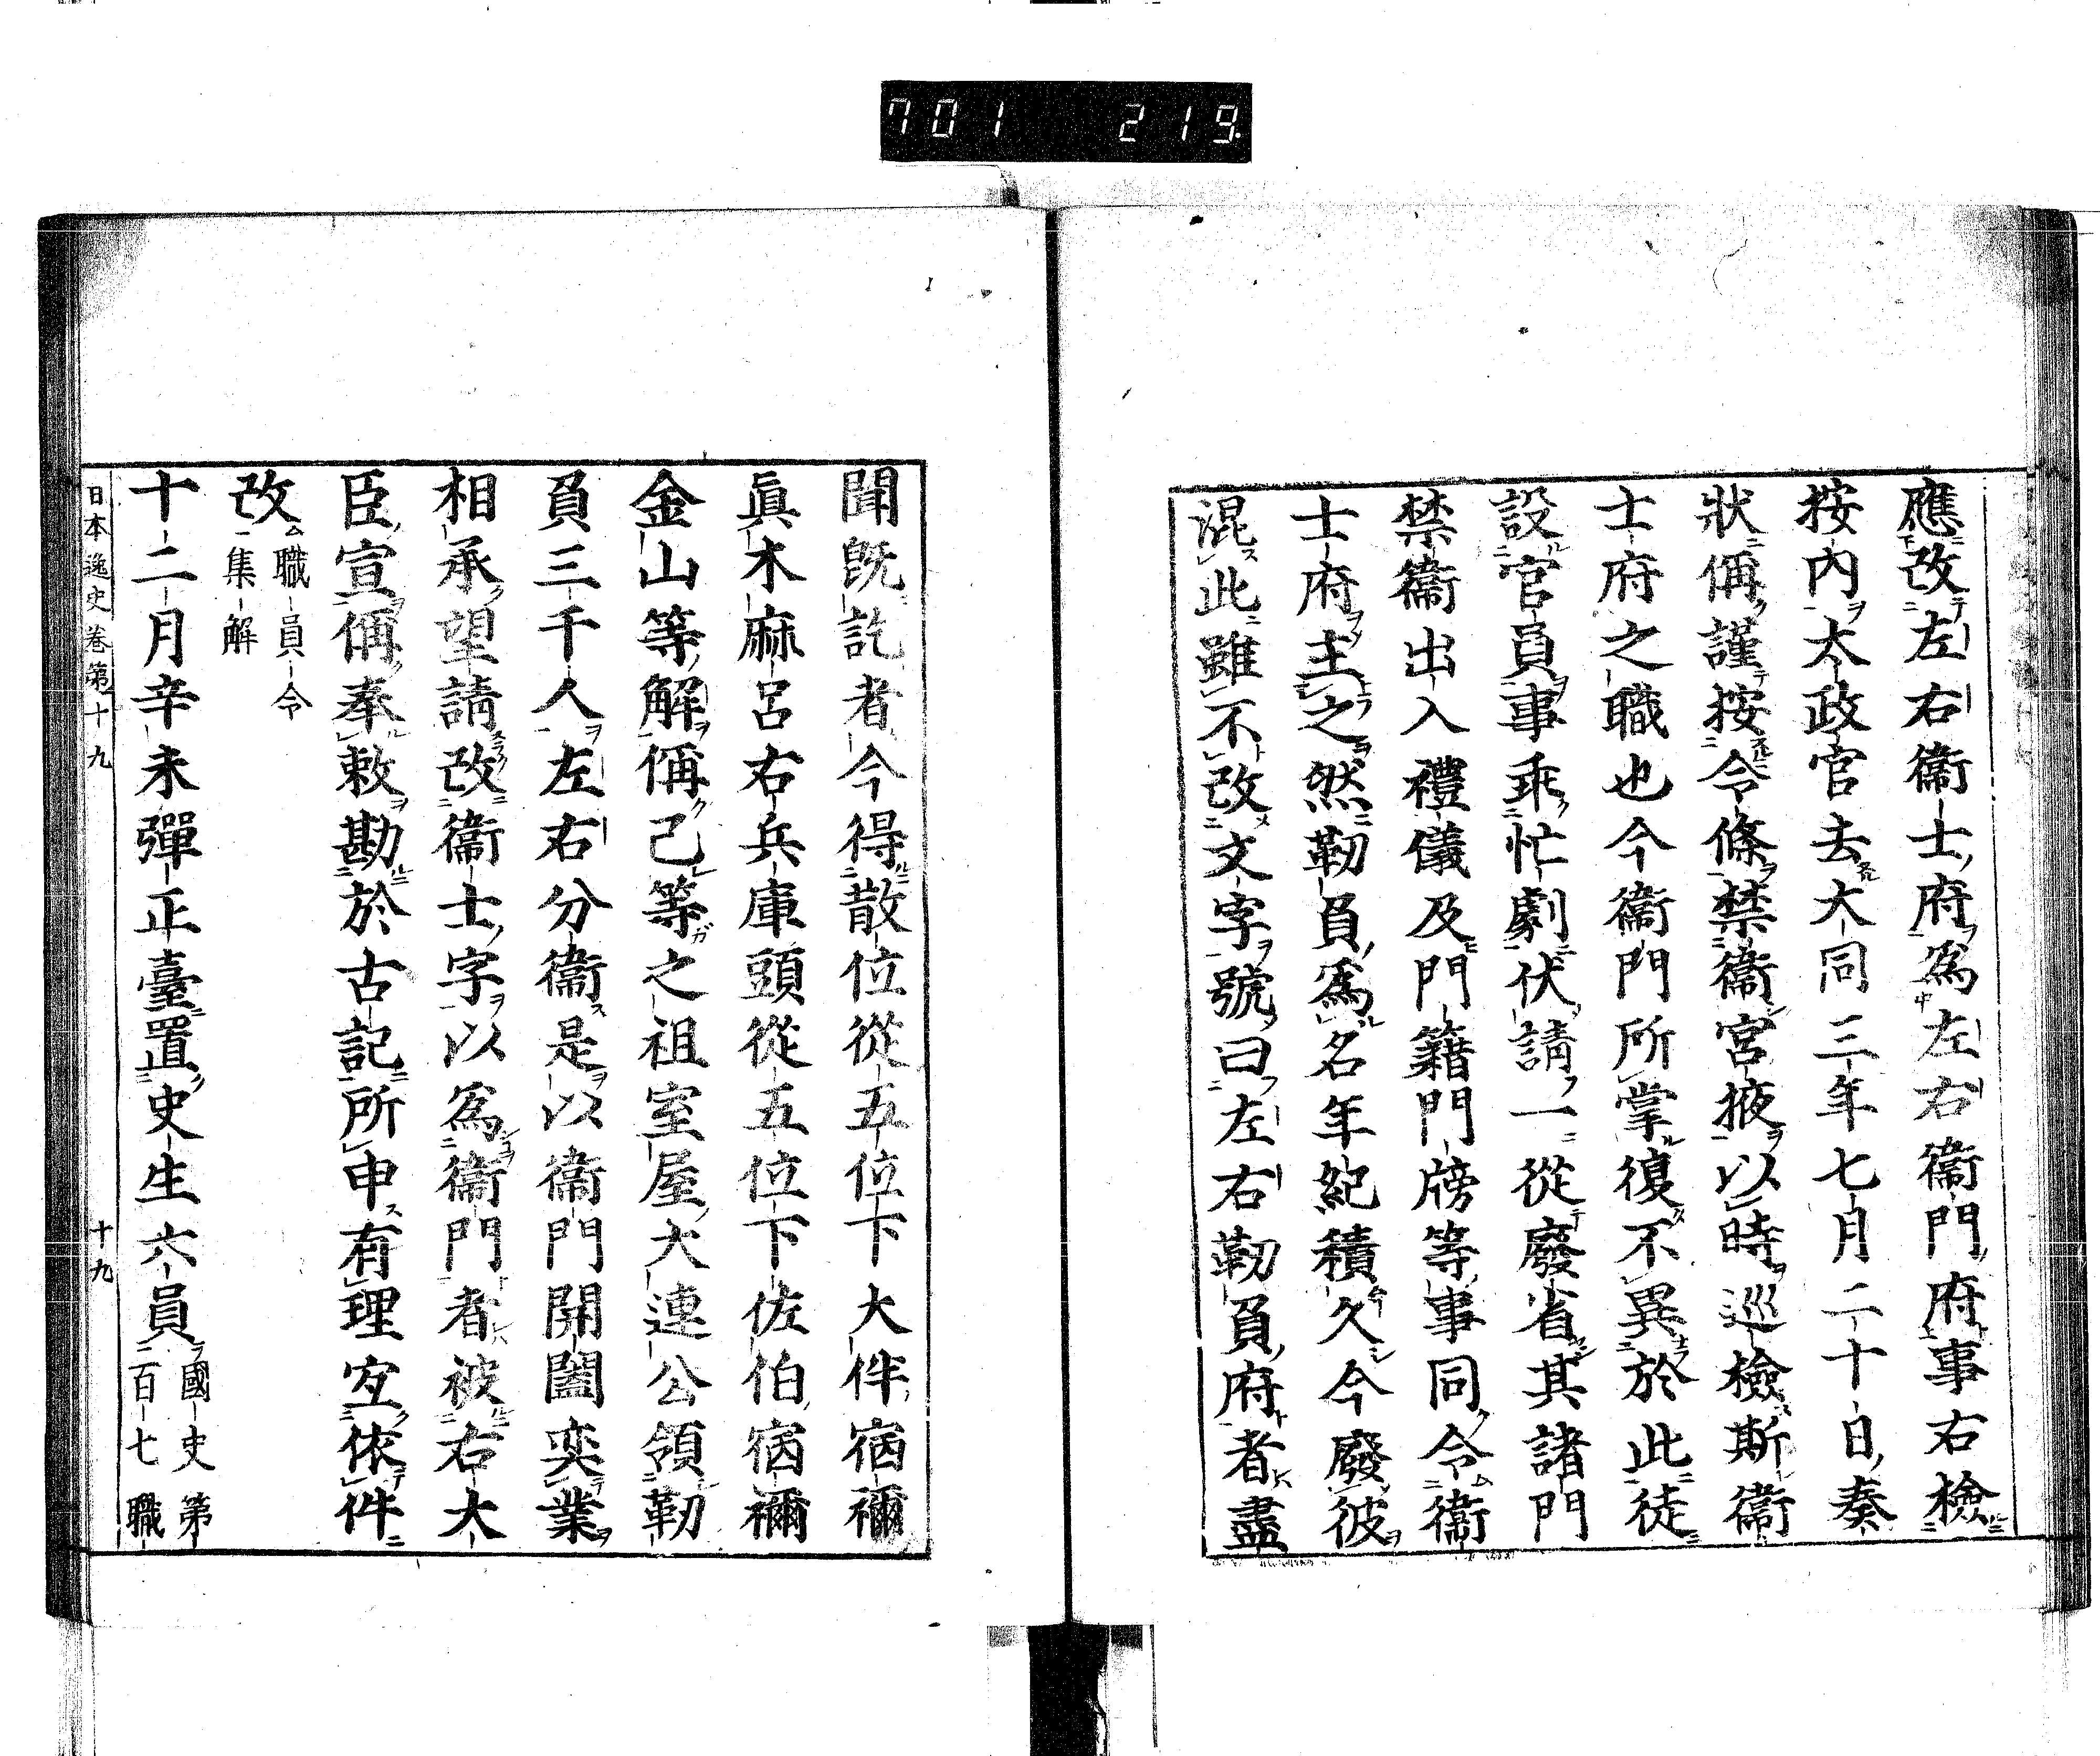 701 219
應改左右衞士府爲左右衞門府事右檢
按內太政官去大同三年七月二十日奏
狀偁謹按令條禁衞宮掖以時巡檢斯衞
士府之職也今衞門所掌復不異於此徒
設官員事乖忙劇伏請一從廢省其諸門
禁衞出入禮儀及門籍門牓等事同令衞
士府主之然靭負爲名年紀積久今廢彼
混此雖不改文字號曰左右靭負府者盡
聞旣訖者今得散位從五位下大伴宿禰
眞木麻呂右兵庫頭從五位下佐伯宿禰
金山等解偁己等之祖室屋大連公領靭
負三千人左右分衞是以衞門開闔奕業
相承望請改衞士字以爲衞門者被右大
臣宣偁奉敕勘於古記所申有理宜依件
改 職員令集解
十二月辛未彈正臺置史生六員 國史第百七職
日本逸史卷第十九 十九